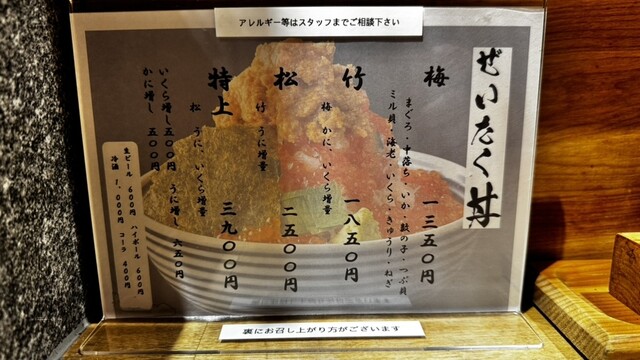 アレルギー等はスタッフまでご相談下さい
ぜいたく丼
梅
まぐろ・中落ち・いか・数の子・つぶ貝
ミル貝・海老・いくら・きゅうり・ねぎ
一三五〇円
竹
梅 かに、いくら増量
一八五〇円
松
竹 うに増量
二五〇〇円
特上
松 うに、いくら増量
三九〇〇円
いくら増し 五〇〇円 うに増し 六五〇円
かに増し 五〇〇円
生ビール 600円 ハイボール 600円
冷酒 1,000円 コーラ 400円
裏にお召し上がり方がございます